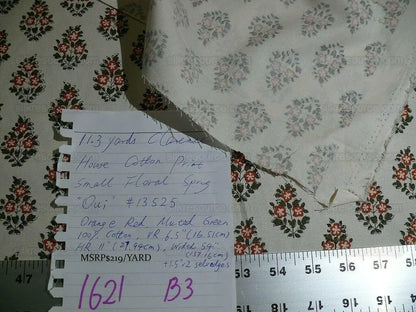 11.3 yards C
House Cotton Print
Small Floral Sprig
"Oui" #13525
Orange Red Muted Green
100% Cotton, VR 6.5" (16.51cm)
HR 11" (27.94cm), Width 54"
(137.16cm)
+1.5"x2 selvedges
MSRP$219/YARD
1621 B3
4/7
50
51
52